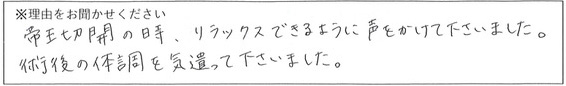 ※理由をお聞かせください
帝王切開の時、リラックスできるように声をかけて下さいました。
術後の体調を気遣って下さいました。